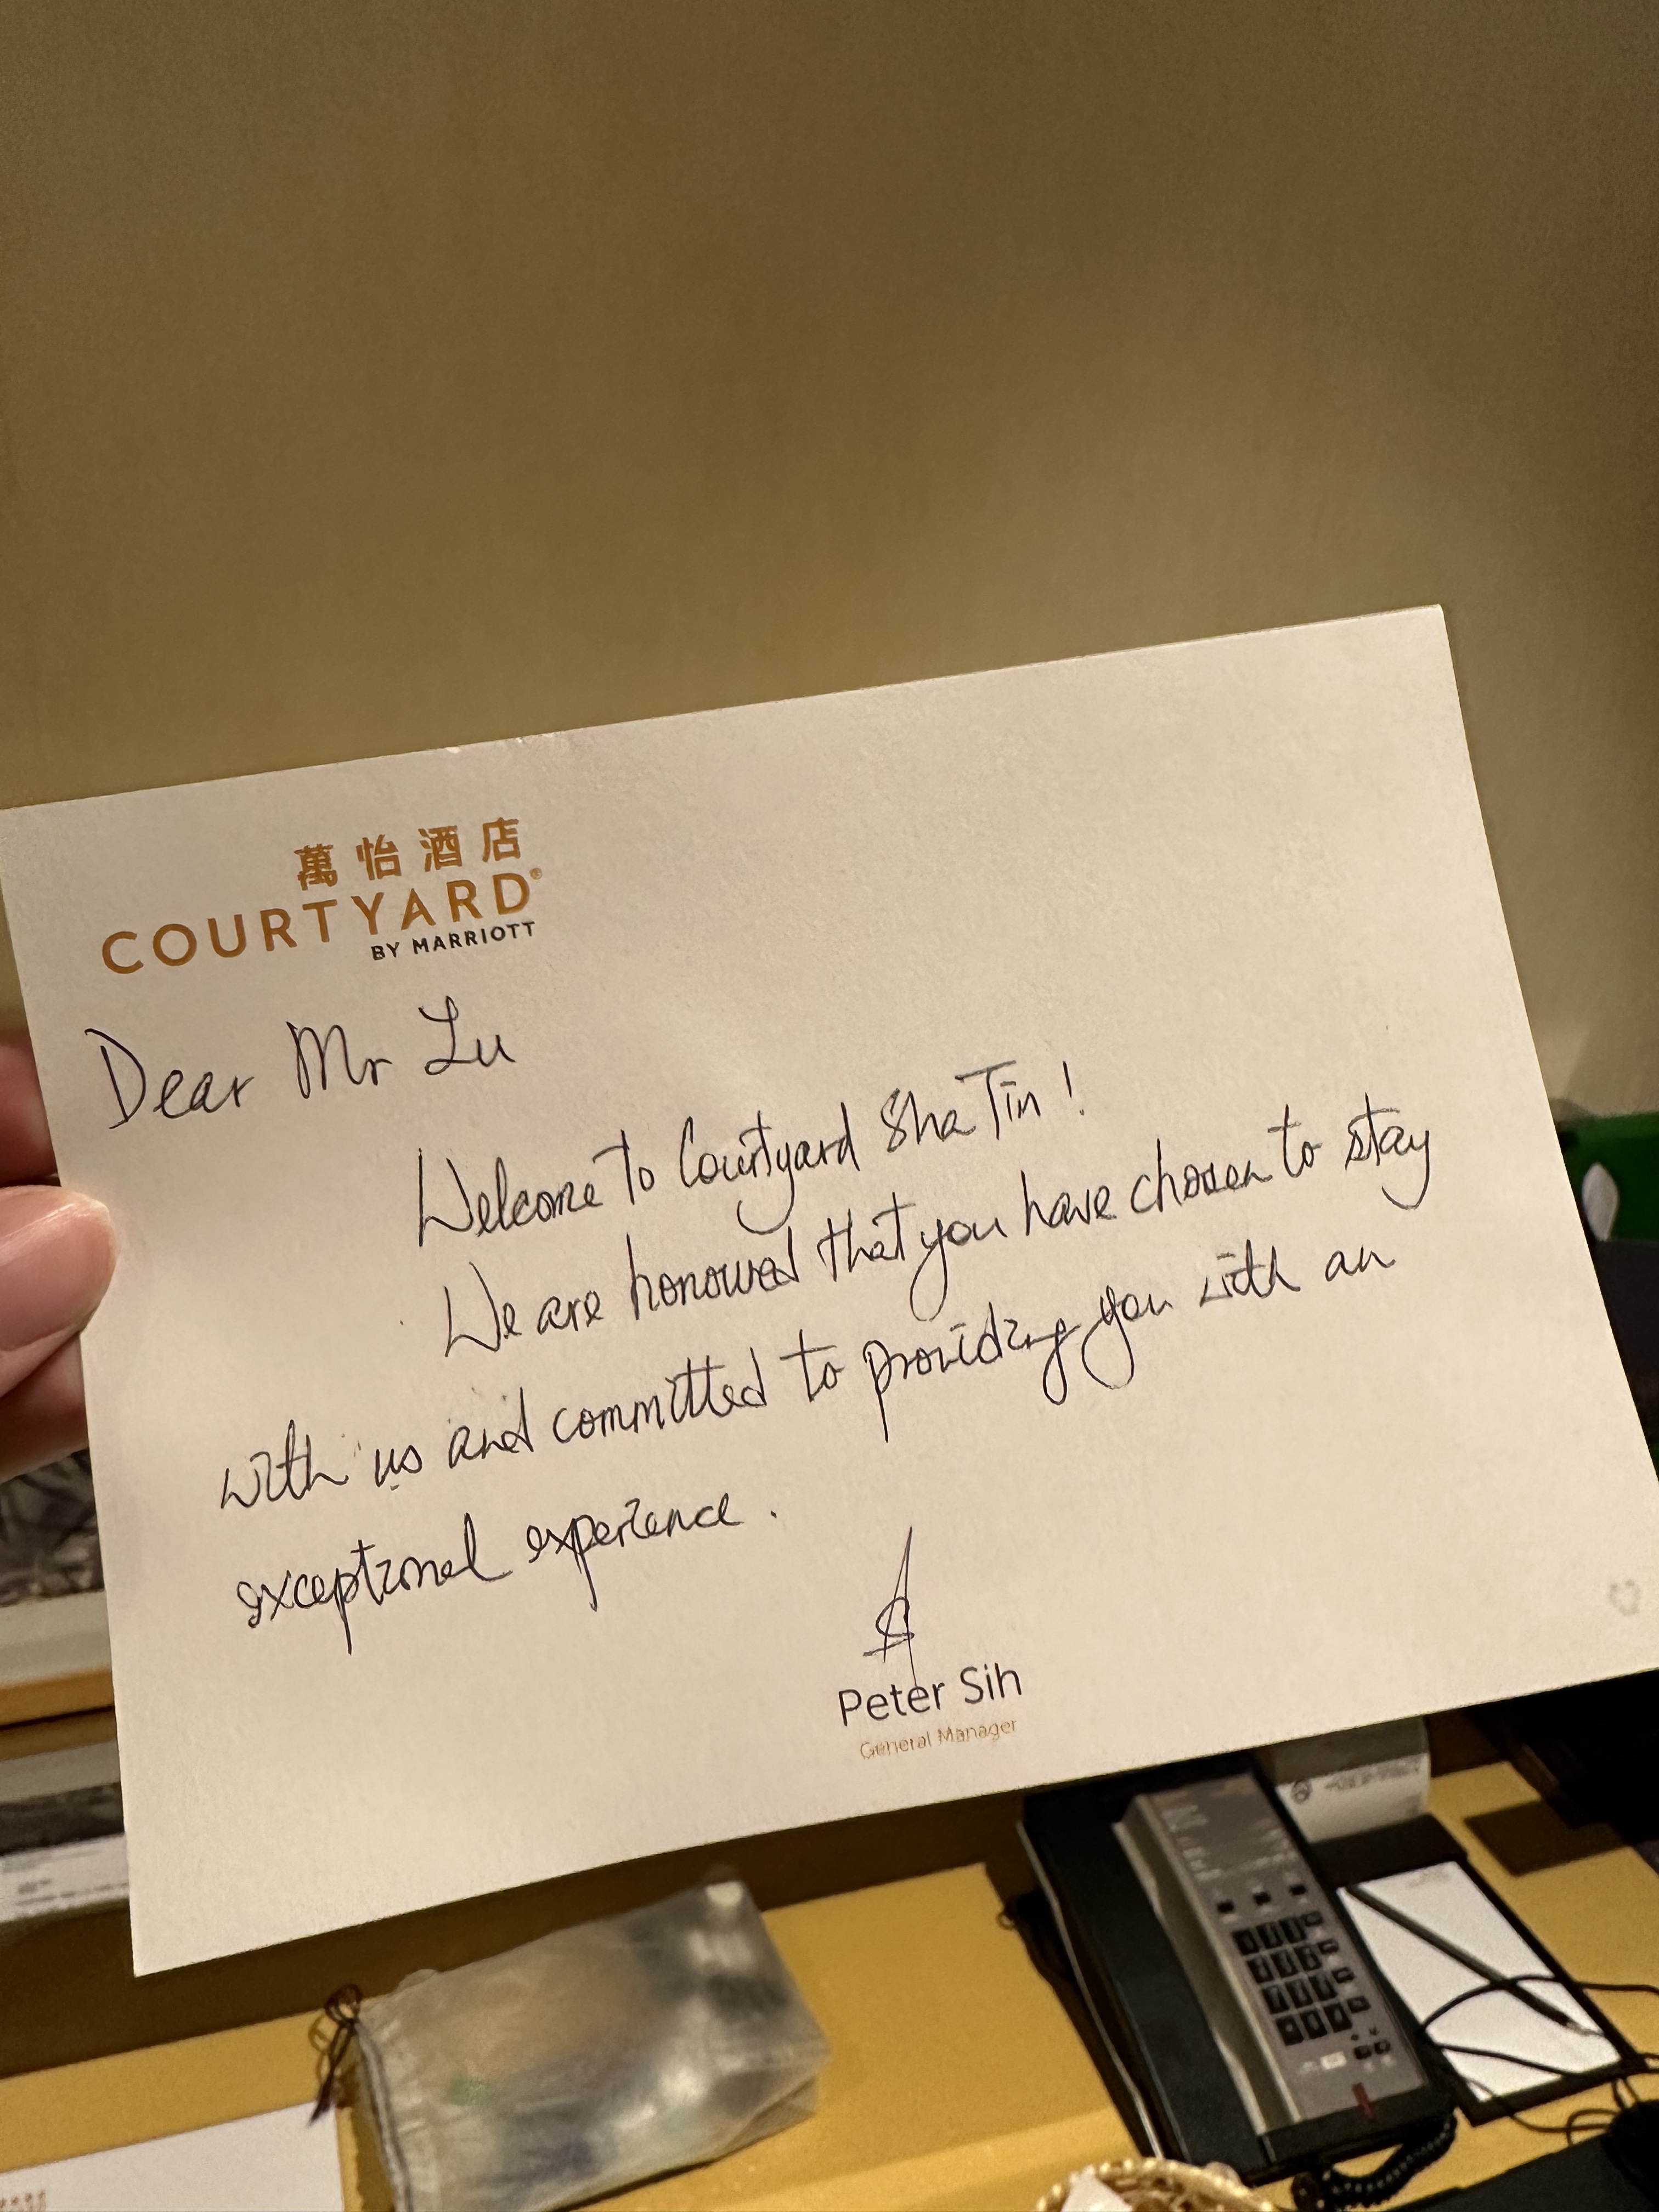 萬怡酒店
COURTYARD®
BY MARRIOTT
Dear Mr Lu
Welcome to Courtyard Sha Tin!
We are honoured that you have chosen to stay
with us and committed to providing you with an
exceptional experience.
Peter Sih
General Manager